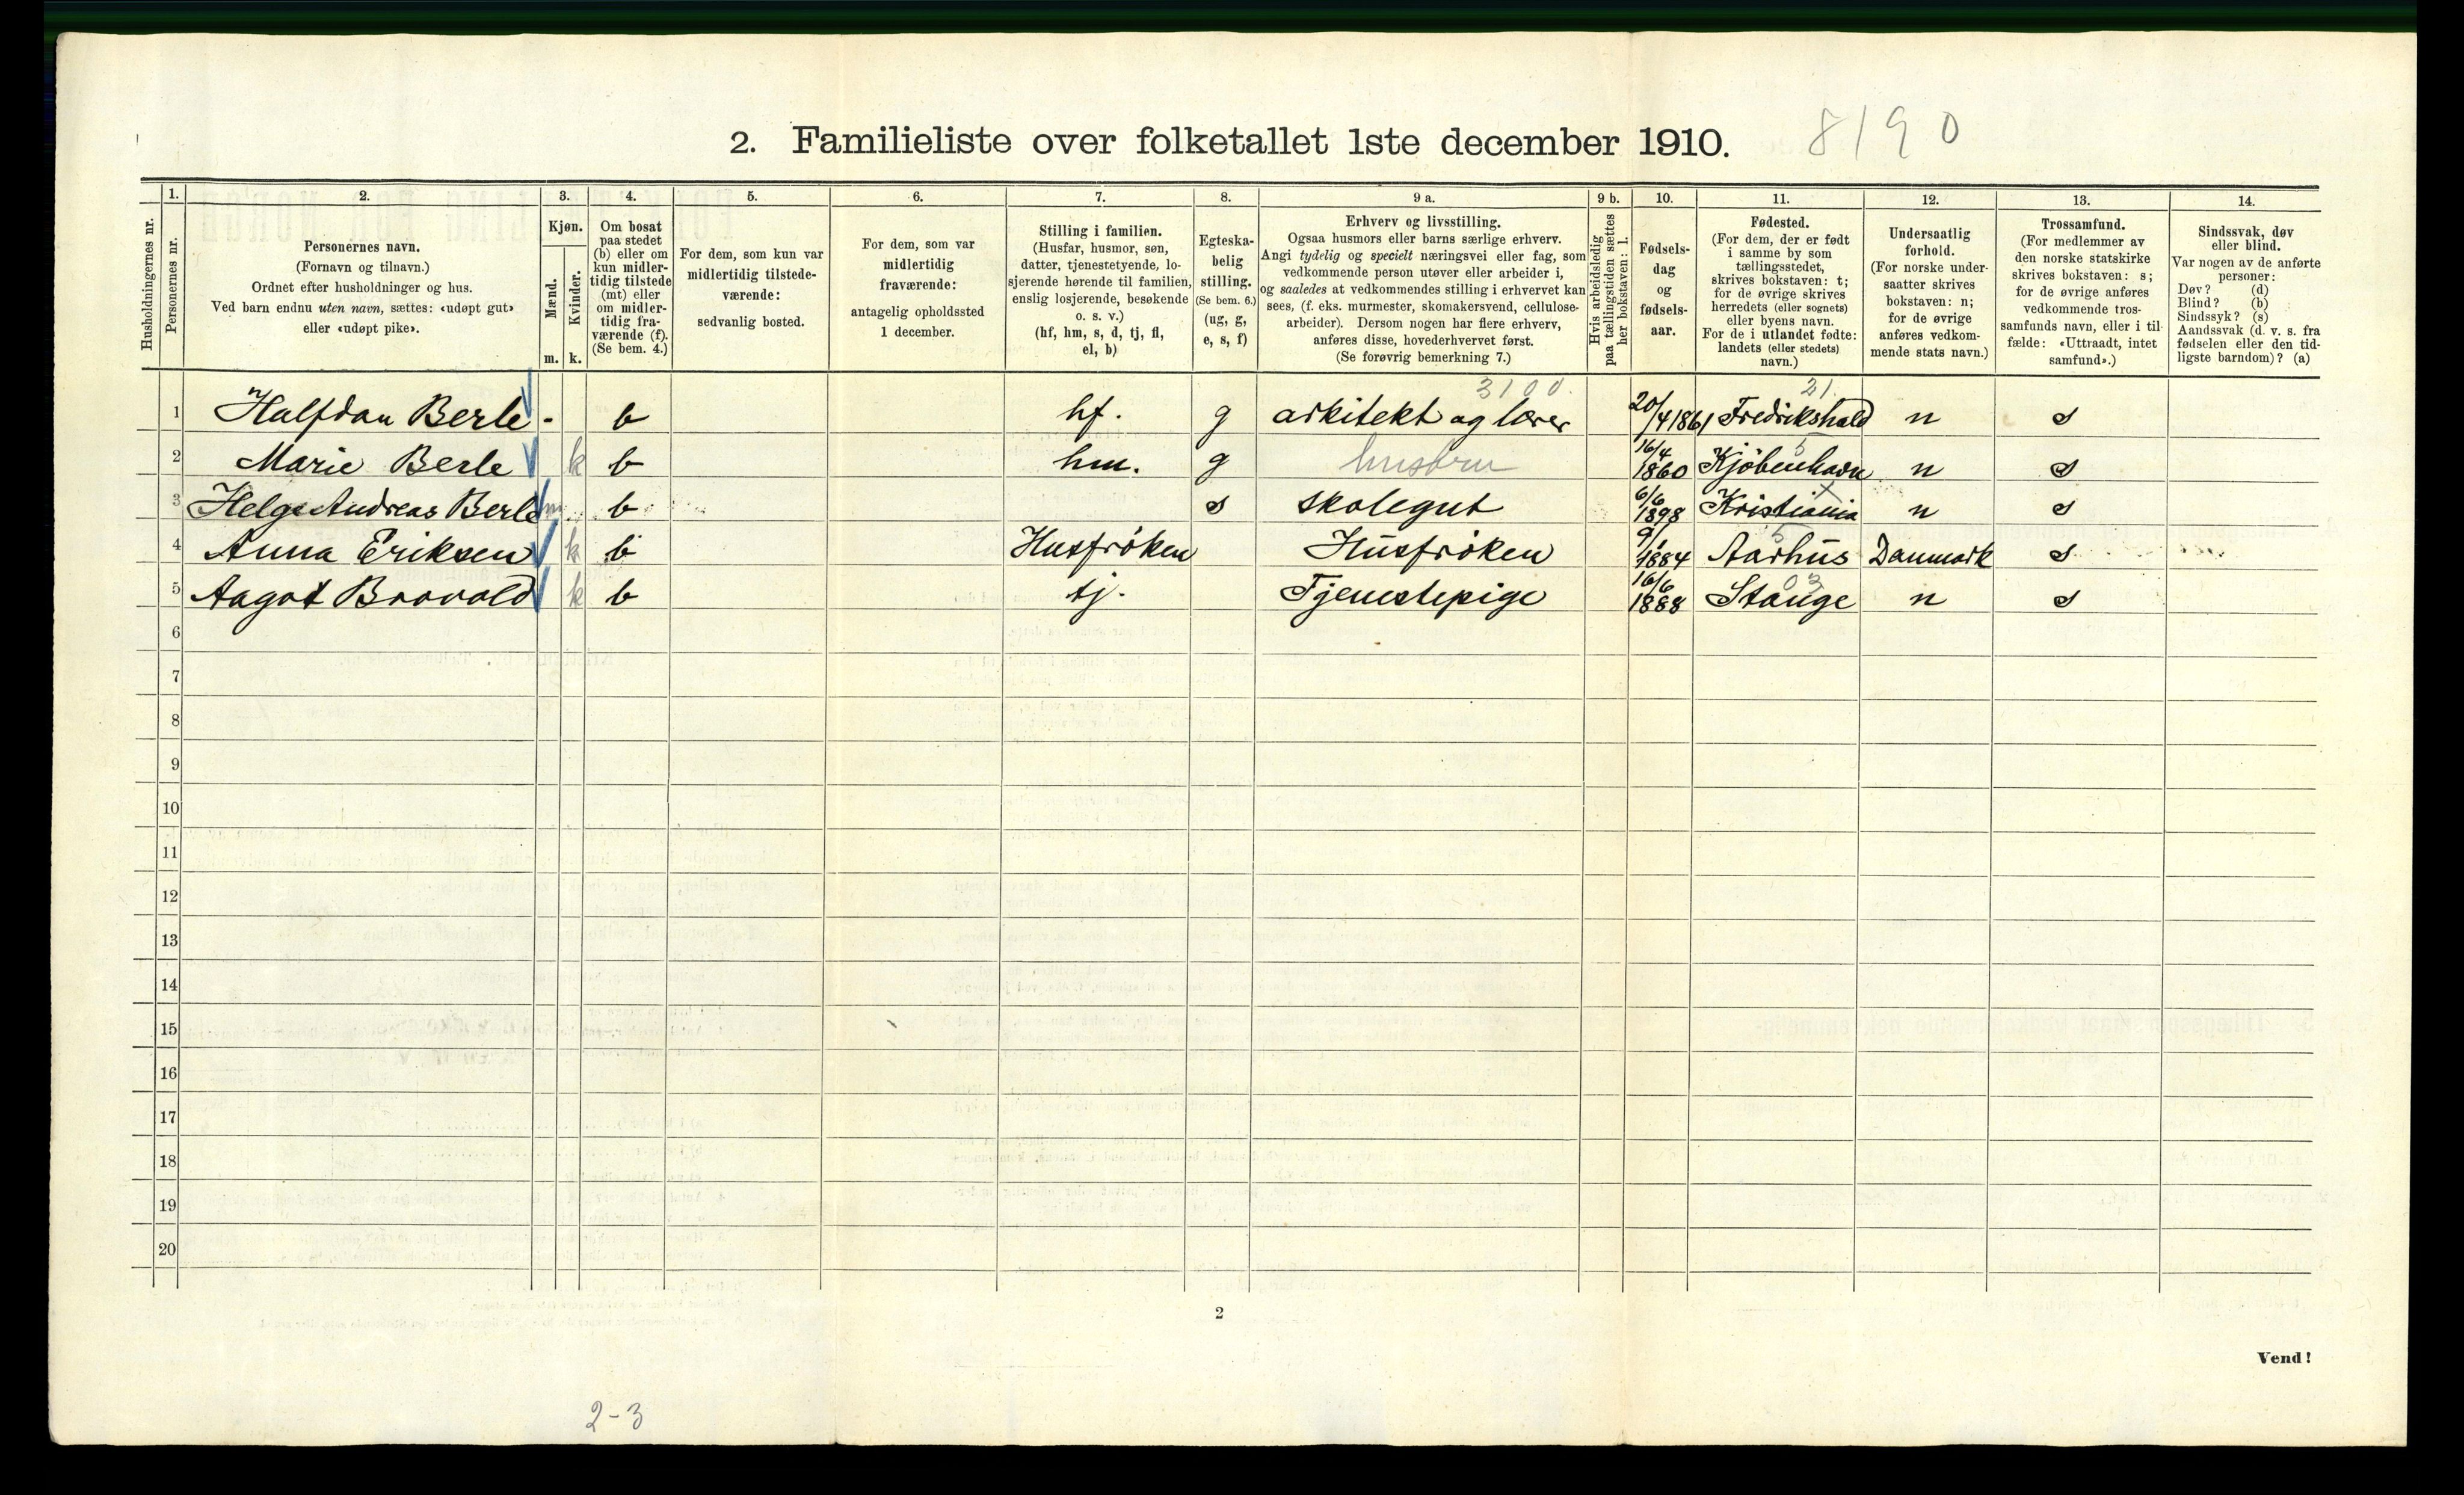 2. Familieliste over folketallet 1ste december 1910. 8190
Husholdningernes nr.
1. Personernes nr.
2. Personernes navn. (Fornavn og tilnavn.) Ordnet efter husholdninger og hus. Ved barn endnu uten navn, sættes: «udøpt gut» eller «udøpt pike».
3. Kjøn. Mænd. m. Kvinder. k.
4. Om bosat paa stedet (b) eller om kun midler- tidig tilstede (mt) eller om midler- tidig fra- værende (f). (Se bem. 4.)
5. For dem, som kun var midlertidig tilstede- værende: sedvanlig bosted.
6. For dem, som var midlertidig fraværende: antagelig opholdssted 1 december.
7. Stilling i familien. (Husfar, husmor, søn, datter, tjenestetyende, lo- sjerende hørende til familien, enslig losjerende, besøkende o. s. v.) (hf, hm, s, d, tj, fl, el, b)
8. Egteska- belig stilling. (Se bem. 6.) (ug, g, e, s, f)
9 a. Erhverv og livsstilling. Ogsaa husmors eller barns særlige erhverv. Angi tydelig og specielt næringsvei eller fag, som vedkommende person utøver eller arbeider i, og saaledes at vedkommendes stilling i erhvervet kan sees, (f. eks. murmester, skomakersvend, cellulose- arbeider). Dersom nogen har flere erhverv, anføres disse, hovederhvervet først. (Se forøvrig bemerkning 7.)
9 b. Hvis arbeidsledig paa tællingstiden sættes her bokstaven: l.
10. Fødsels- dag og fødsels- aar.
11. Fødested. (For dem, der er født i samme by som tællingsstedet, skrives bokstaven: t; for de øvrige skrives herredets (eller sognets) eller byens navn. For de i utlandet fødte: landets (eller stedets) navn.)
12. Undersaatlig forhold. (For norske under- saatter skrives bokstaven: n; for de øvrige anføres vedkom- mende stats navn.)
13. Trossamfund. (For medlemmer av den norske statskirke skrives bokstaven: s; for de øvrige anføres vedkommende tros- samfunds navn, eller i til- fælde: «Uttraadt, intet samfund».)
14. Sindssvak, døv eller blind. Var nogen av de anførte personer: Døv? (d) Blind? (b) Sindssyk? (s) Aandssvak (d. v. s. fra fødselen eller den tid- ligste barndom)? (a)
3100. 21.
1 Halfdan Berle - b hf. g arkitekt og lærer 20/4 1861 Fredrikshald n s
2 Marie Berle k b hm. g husbru 16/4 1860 Kjöbenhavn 5 n s
3 Helge Andreas Berle m b s skolegut 6/6 1898 Kristiania n s
4 Anna Eriksen k b Husfröken Husfröken 9/1 1884 Aarhus 5 Danmark s
5 Aagot k b tj. Tjenestepige 16/6 1888 Stange 03 n s
6
7
8
9
10
11
12
13
14
15
16
17
18
19
20
2
Vend!
2-3